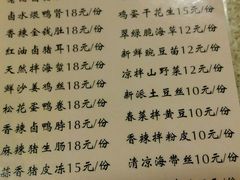 卤水煨鸭肾18元/份
香辣金钱肚18元/份
红油卤猪耳18元/份
天然拌海蜇18元/份
鲜沙姜鸡丝18元/份
松花蛋鸭卷18元/份
香辣卤鸭脖18元/份
麻辣猪生肠18元/份
蒜香猪皮冻15元/份
鸡蛋干花生15元/
翠绿脆海草12元/份
新鲜豌豆苗12元/份
凉拌山野菜12元/
新派土豆丝10元/份
春菜拌黄豆10元/份
香辣拌粉皮10元/份
清凉海带丝10元/份